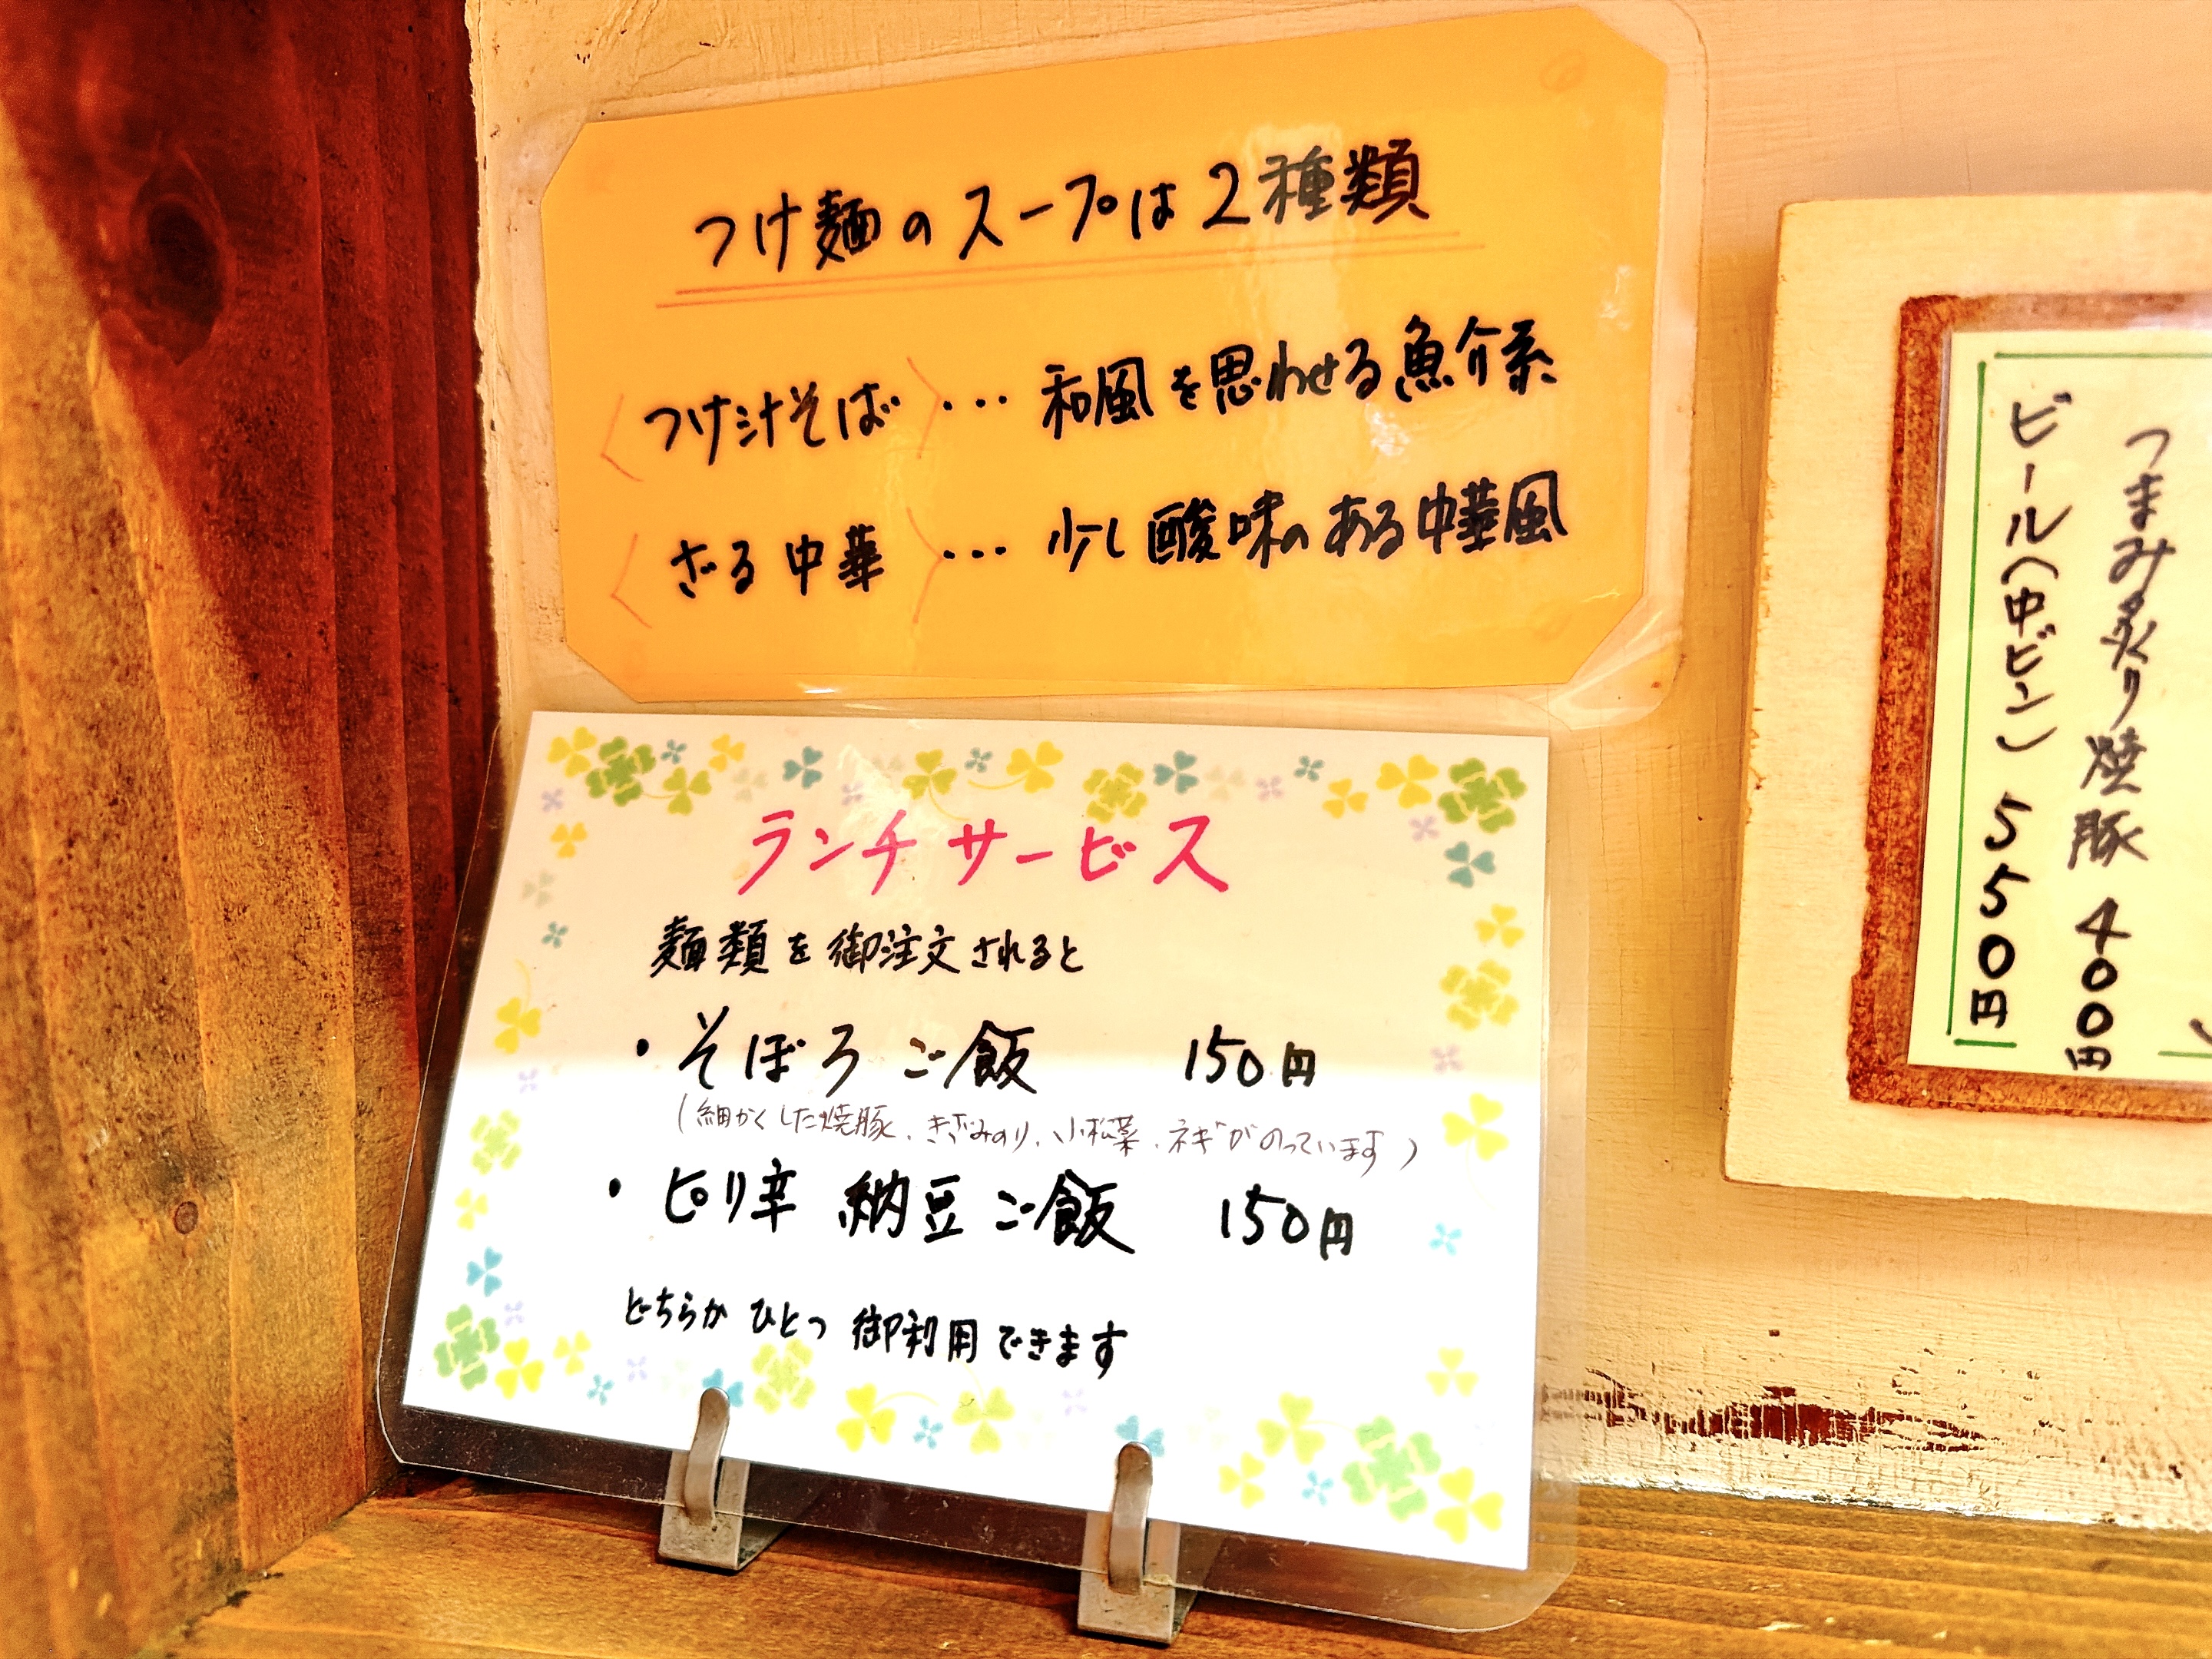 つけ麺のスープは2種類
〈つけ汁そば〉… 和風を思わせる魚介系
〈ざる中華〉… 少し酸味のある中華風
ランチサービス
麺類を御注文されると
・そぼろご飯 150円
(細かくした焼豚、きざみのり、小松菜、ネギがのっています)
・ピリ辛納豆ご飯 150円
どちらかひとつ御利用できます
つまみ炙り焼豚 400円
ビール(中ビン) 550円